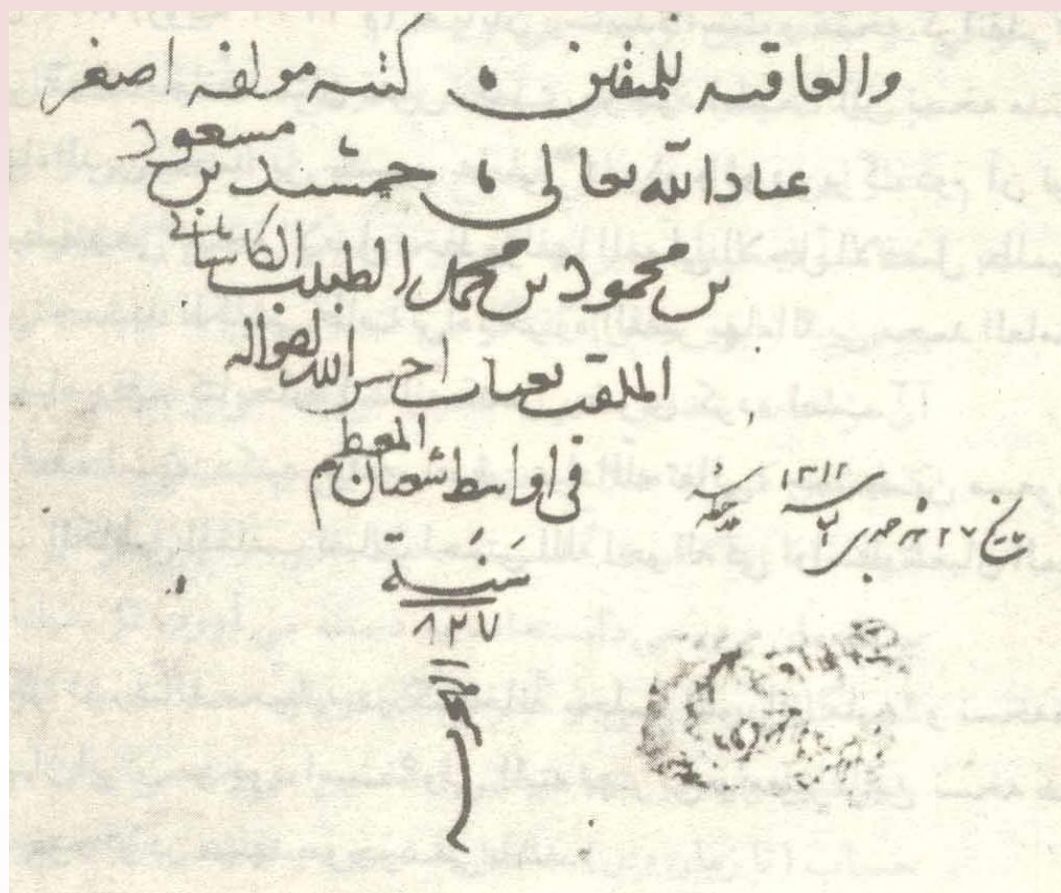 والعاقبه للمتقين كتبه مولفه اصغر
عباد الله تعالى جمشيد بن مسعود
بن محمود بن محمد الطبيب الكاشانى
الملقب بغياث احسن الله احواله
فى اواسط شعبان المعظم
سَنَة
٨٢٧
تاريخ ٢٧
سنه ١٣١٢